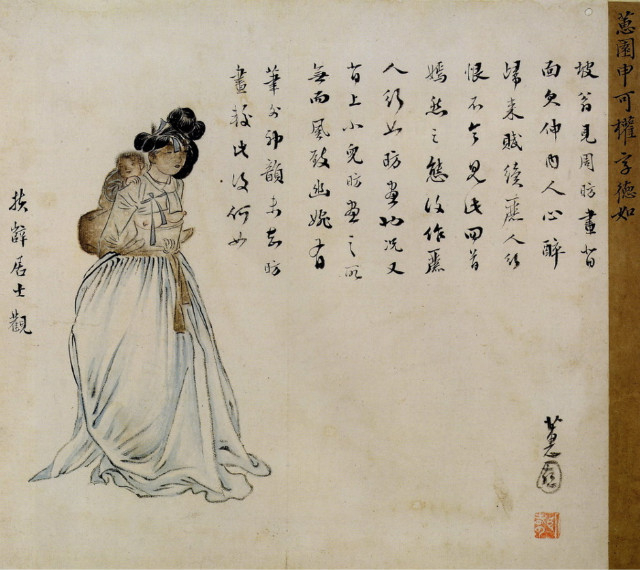 蕙園申可權字德如
坡翁見周昉畫背
面欠伸內人心醉
歸來賦續麗人行
恨不令見此回首
嫣然之態復作麗
人行如昉畫也況又
背上小兒昉畫之所
無而風致幽婉有
筆外神韻未知昉
畫較此復何如
扶薜居士觀
蕙園